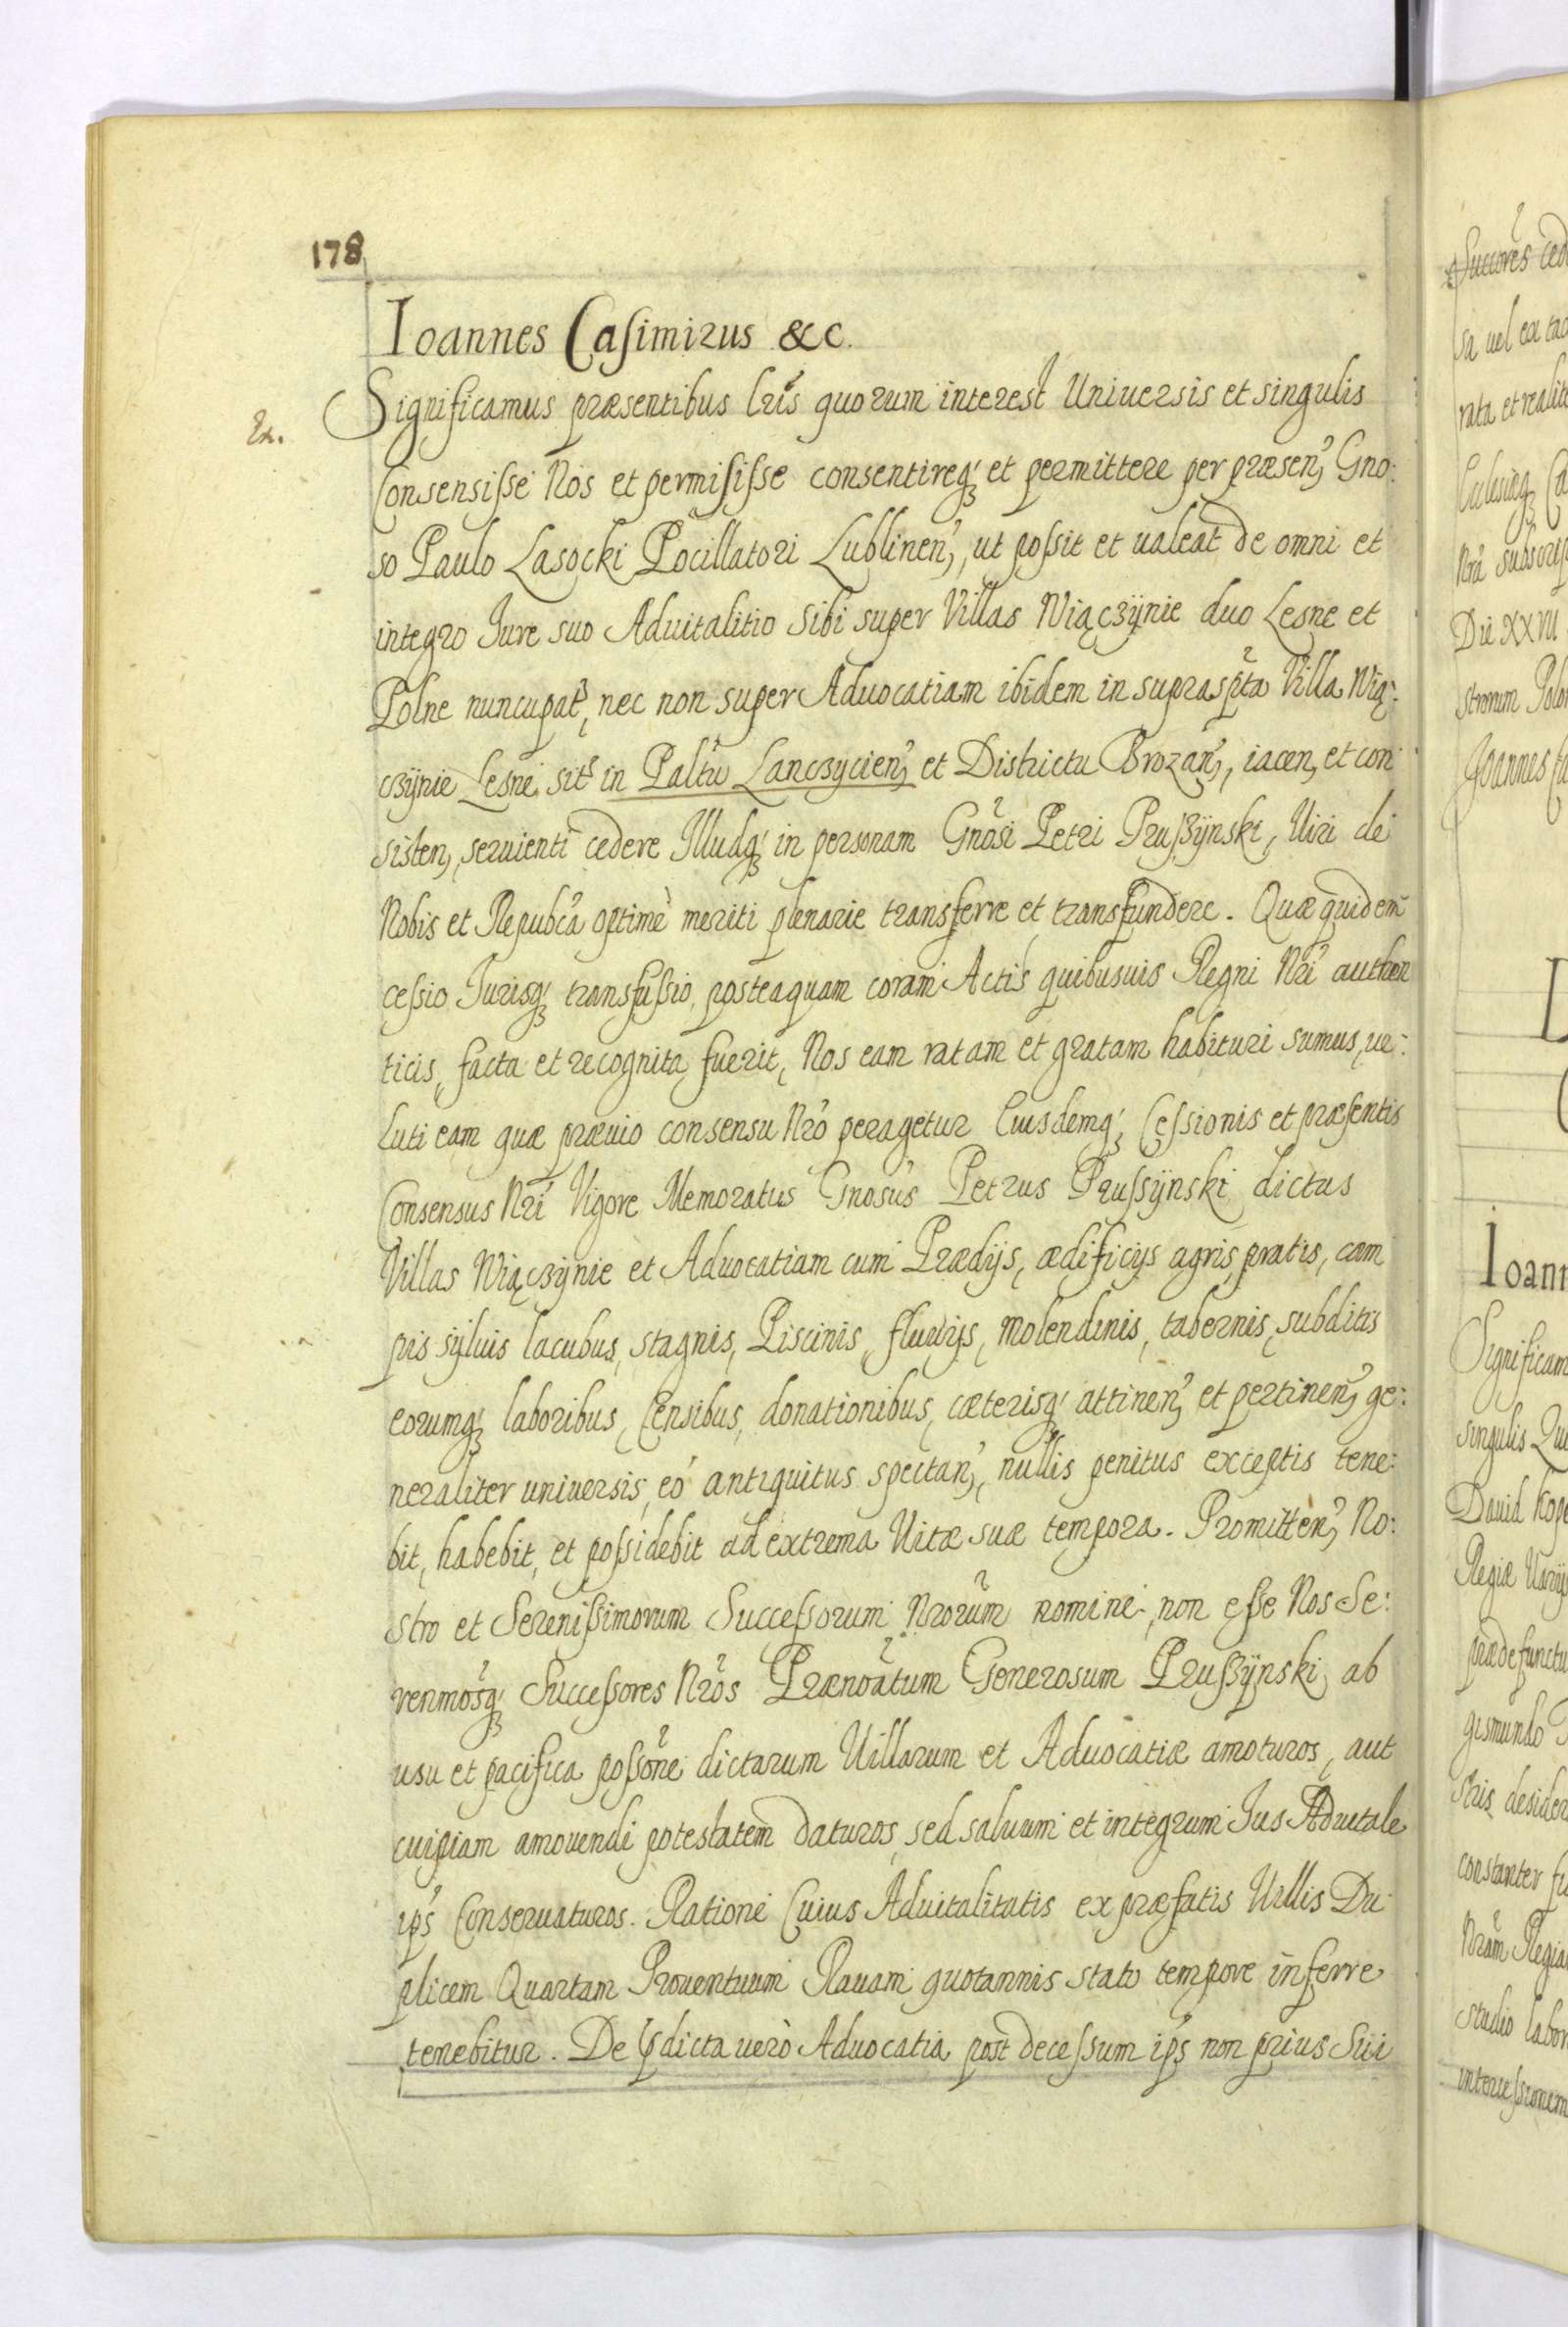 178
Ioannes Casimirus &c.
Significamus præsentibus lris quorum interest Universis et singulis
Ex.
Consensisse Nos et permisisse consentireq; et permittere per præsen, Gno:
so Paulo Lasocki Pocillatori Lublinen, ut possit et ualeat de omni et
integro Jure suo Aduitalitio Sibi super Villas Wiączÿnie duo Lesne et
Polne nuncupat, nec non super Aduocatiam ibidem in supraspta Villa Wią:
czÿnie Lesne sit in Paltu Lanczycien, et Districtu Brozan, iacen, et con
sisten, seruienti cedere Illudq; in personam Gnosi Petri Pruszÿnski, Uiri de
Nobis et Repubca optimè meriti plenarie transferre et transfundere. Quæ quidem
cessio Jurisq; transfusio, posteaquam coram Actis quibusuis Regni Nri authen
ticis, facta et recognita fuerit, Nos eam ratam et gratam habituri sumus, ue:
luti eam quæ præuio consensu Nro peragetur Cuusdemq; Cessionis et præsentis
Consensus Nri Vigore Memoratus Gnosus Petrus Prussÿnski dictas
Villas Wiączÿnie et Aduocatiam cum Prædijs, ædificijs agris, pratis, cam
pis sÿluis lacubus, stagnis, Piscinis, fluuijs, molendinis, tabernis, subditis
eorumq; laboribus, Censibus, donationibus, cæterisq; attinen, et pertinen, ge:
neraliter uniuersis, eò antiquitus spectan, nullis penitus exceptis tene:
bit, habebit, et possidebit ad extrema Uitæ suæ tempora. Promitten, No:
stro et Serenissimorum Successorum Nrorum nomine, non esse Nos Se:
renmosq; Successores Nros Prænoatum Generosum Pruszÿnski ab
usu et pacifica possone dictarum Uillarum et Aduocatiæ amoturos, aut
cuipiam amouendi potestatem daturos, sed saluum et integrum Jus Aduitale
ips Conseruaturos. Ratione Cuius Aduitalitatis ex præfatis Uillis Du
plicem Quartam Prouentuum Rauam quotannis stato tempore inferre
tenebitur. De pdicta uerò Aduocatia post decessum ips non prius Sui
Succores ced
sa uel ea
rata et realit
Nra subscrip
Die XXVII
strorum Polon
Joannes Ca
Ioann
Significam
singulis Qui
Dauid Kope
Regiæ
prædefunctu
gismundo
stris desider
constanter
Nram Regia
studio labor
intercessionem